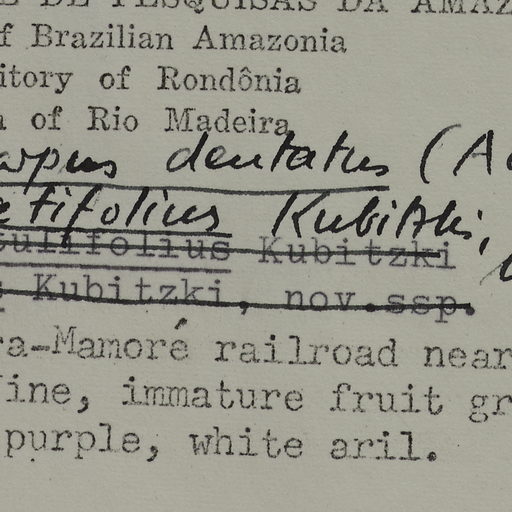 E DE PESQUISAS DA AMAZ
f Brazilian Amazonia
itory of Rondônia
of Rio Madeira
arpus dentatus (A
tifolius Kubitzki,
tulifolius Kubitzki
Kubitzki, nov.ssp.
ra-Mamoré railroad near
Vine, immature fruit gr
purple, white aril.